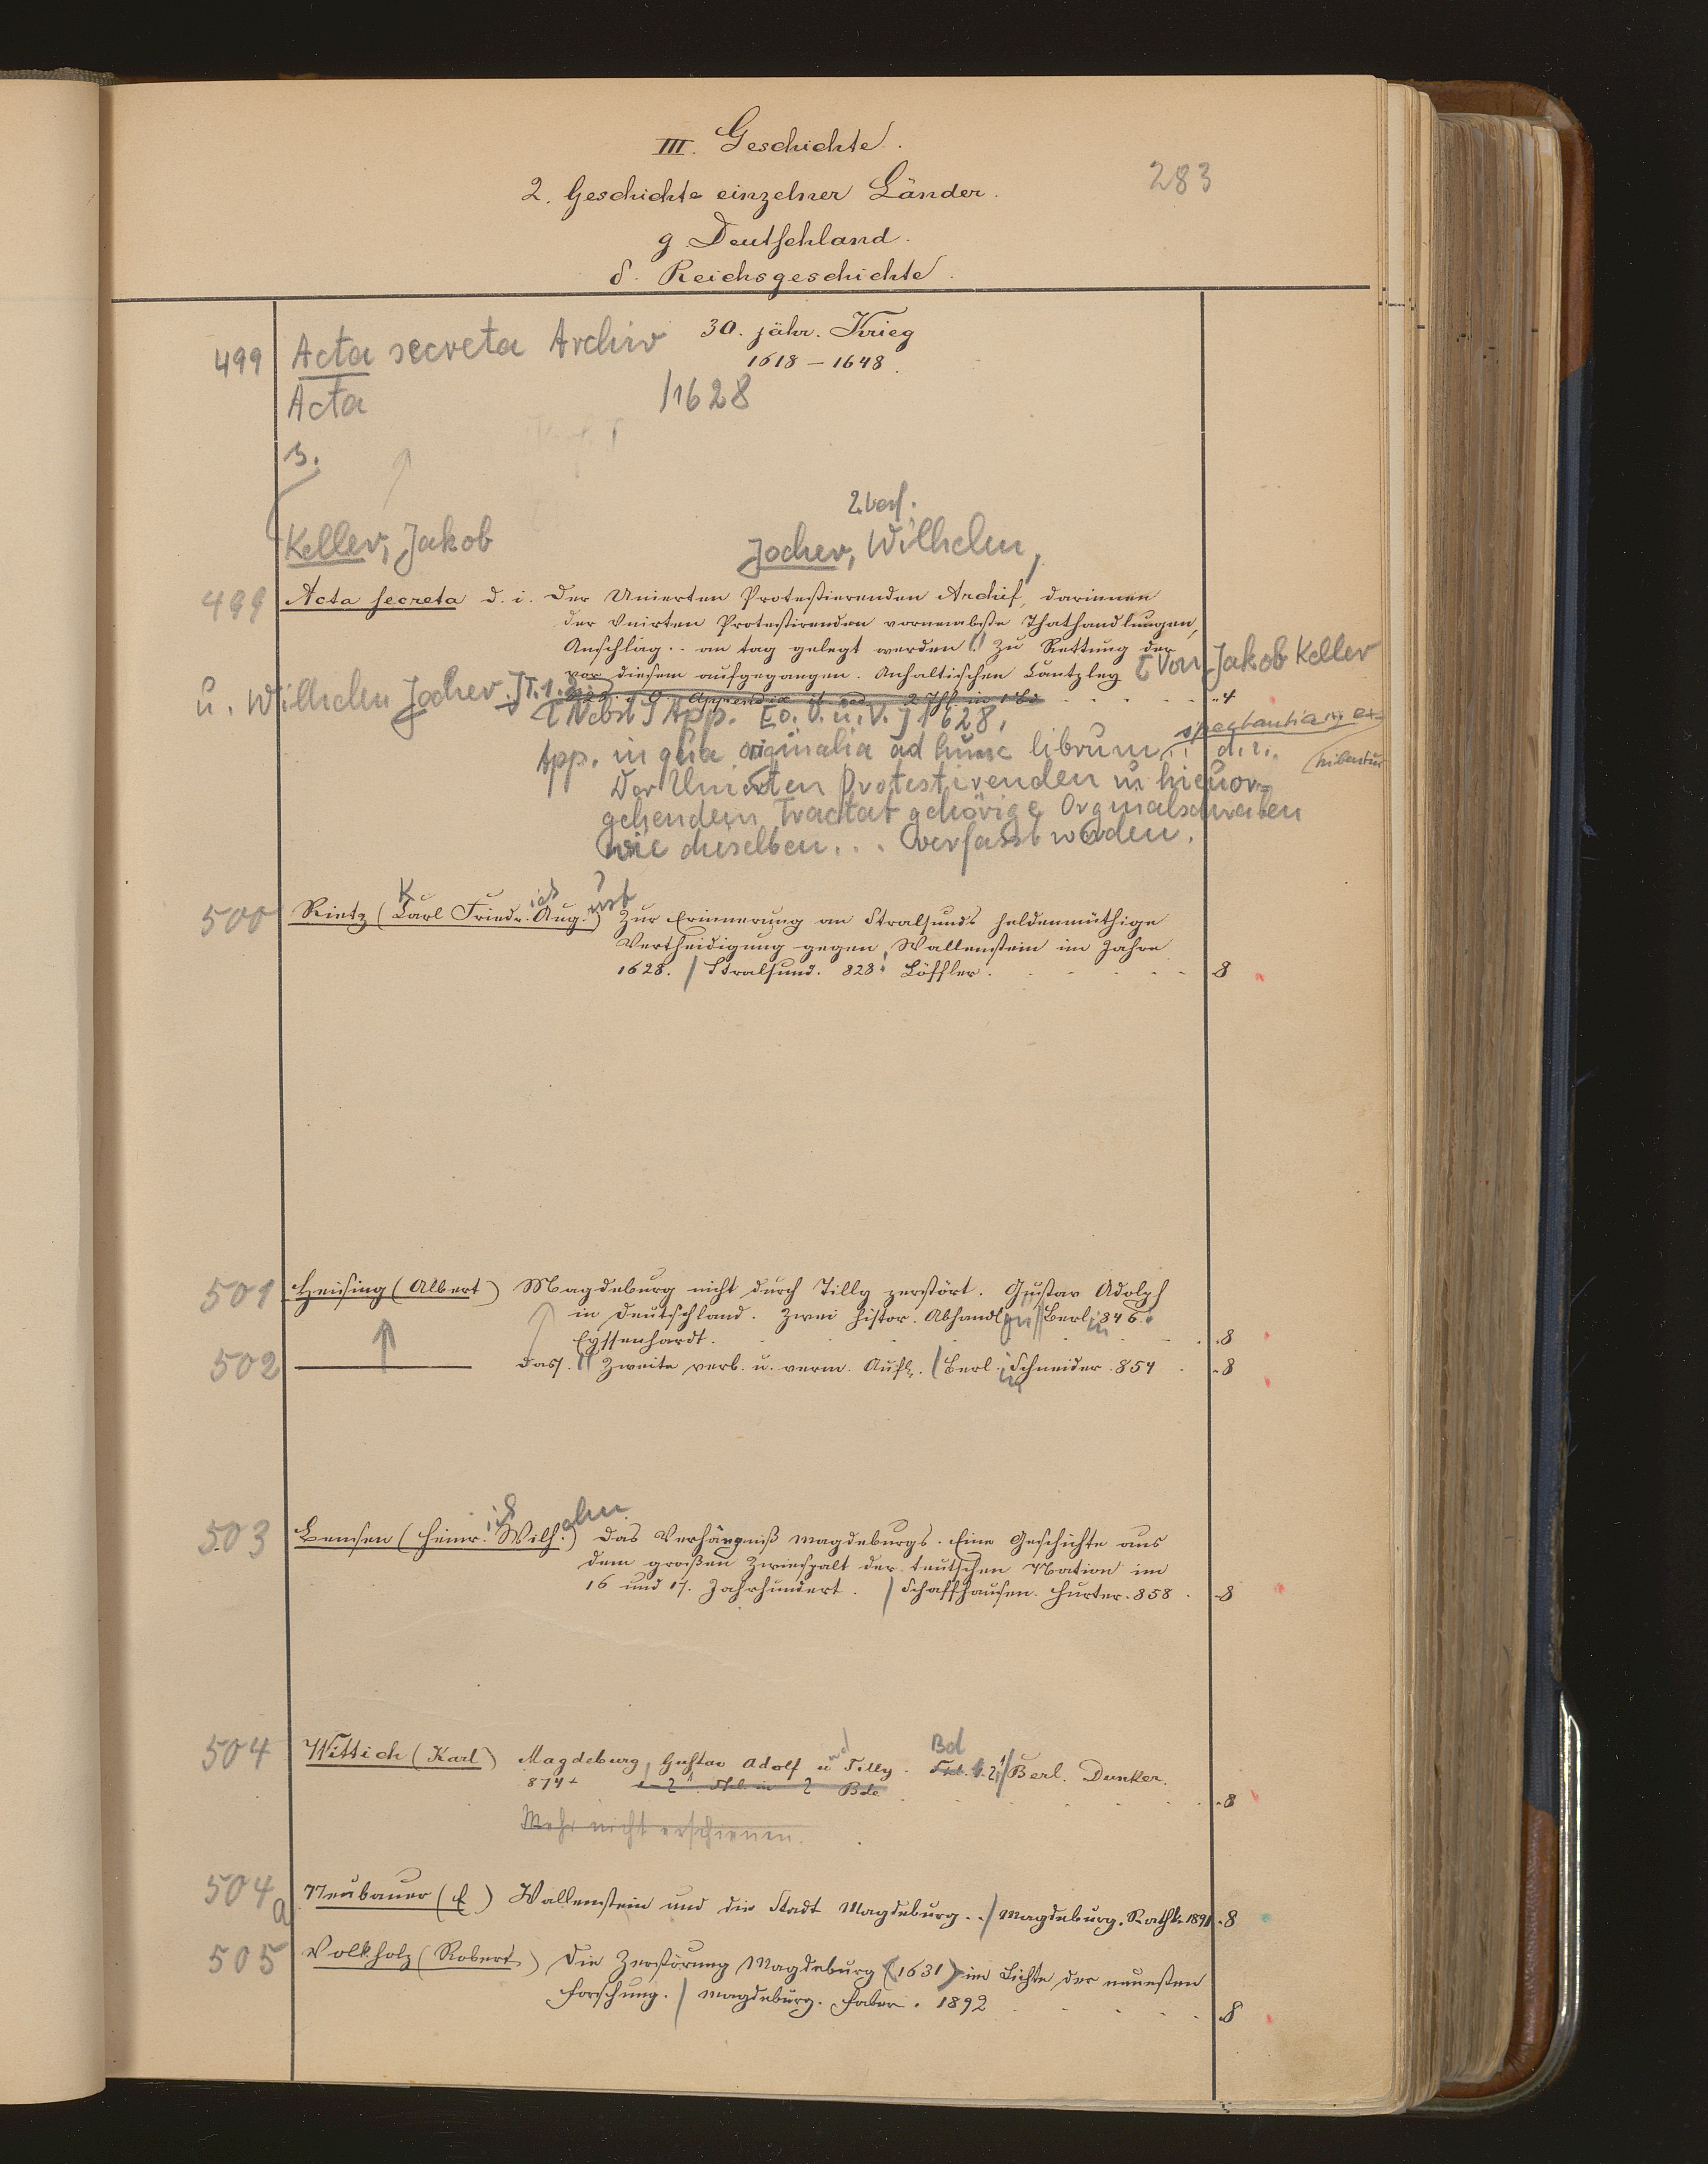 III. Geschichte.
283
2. Geschichte einzelner Länder.
g Deutschland.
δ. Reichsgeschichte.
30. jähr. Krieg
1618 – 1648.
499 Acta secreta Archiv
Acta /1628
s.
2. Verf.
Keller, Jakob Jocher, Wilhelm,
499 Acta secreta d. i. Der Unierten Protestierenden Archif, darinnen
der Unirten Protestirenden vornembste Thathandlungen,
Anschläg.. an tag gelegt werden (!) Zu Rettung der
vor diesem aufgegangen. Anhaltischen Cantzley [Von Jakob Keller
u. Wilhelm Jocher.] T. 1. 2. 4
[Nebst] App. [o. O. u. V.] 1628,
App. in qua originalia ad hunc librum spectantia ex-
hibentur d. i.
Der Unierten Protestirenden in hieuor-
gehendem Tractat gehörige Orginalschreiben
wie dieselben... verfasst worden.
500 Rietz (Karl Friedrich August) Zur Erinnerung an Stralsunds heldenmüthige
Vertheidigung gegen Wallenstein im Jahre
1628. / Stralsund. 828: Löffler. 8
501 Heising (Albert) Magdeburg nicht durch Tilly zerstört. Gustav Adolph
in Deutschland. Zwei histor. Abhandlgn. // Berlin 846.
Eyssenhardt. 8
502 ——— Dass. // Zweite verb. u. verm. Aufl. / Berlin Schneider. 854 8
503 Bensen (Heinrich Wilhelm) Das Verhängniß Magdeburgs. Eine Geschichte aus
dem großen Zwiespalt der teutschen Nation im
16 und 17. Jahrhundert. / Schaffhausen. Hurter. 858. 8
504 Wittich (Karl) Magdeburg, Gustav Adolf und Tilly. Bd 1. 2. / Berl. Dunker.
874 8
Mehr nicht erschienen.
504a Neubauer (E) Wallenstein und die Stadt Magdeburg. / Magdeburg. Rathke 1891. 8
505 Volkholz (Robert) Die Zerstörung Magdeburg (1631) im Lichte der neuesten
Forschung. / Magdeburg. Faber. 1892 8